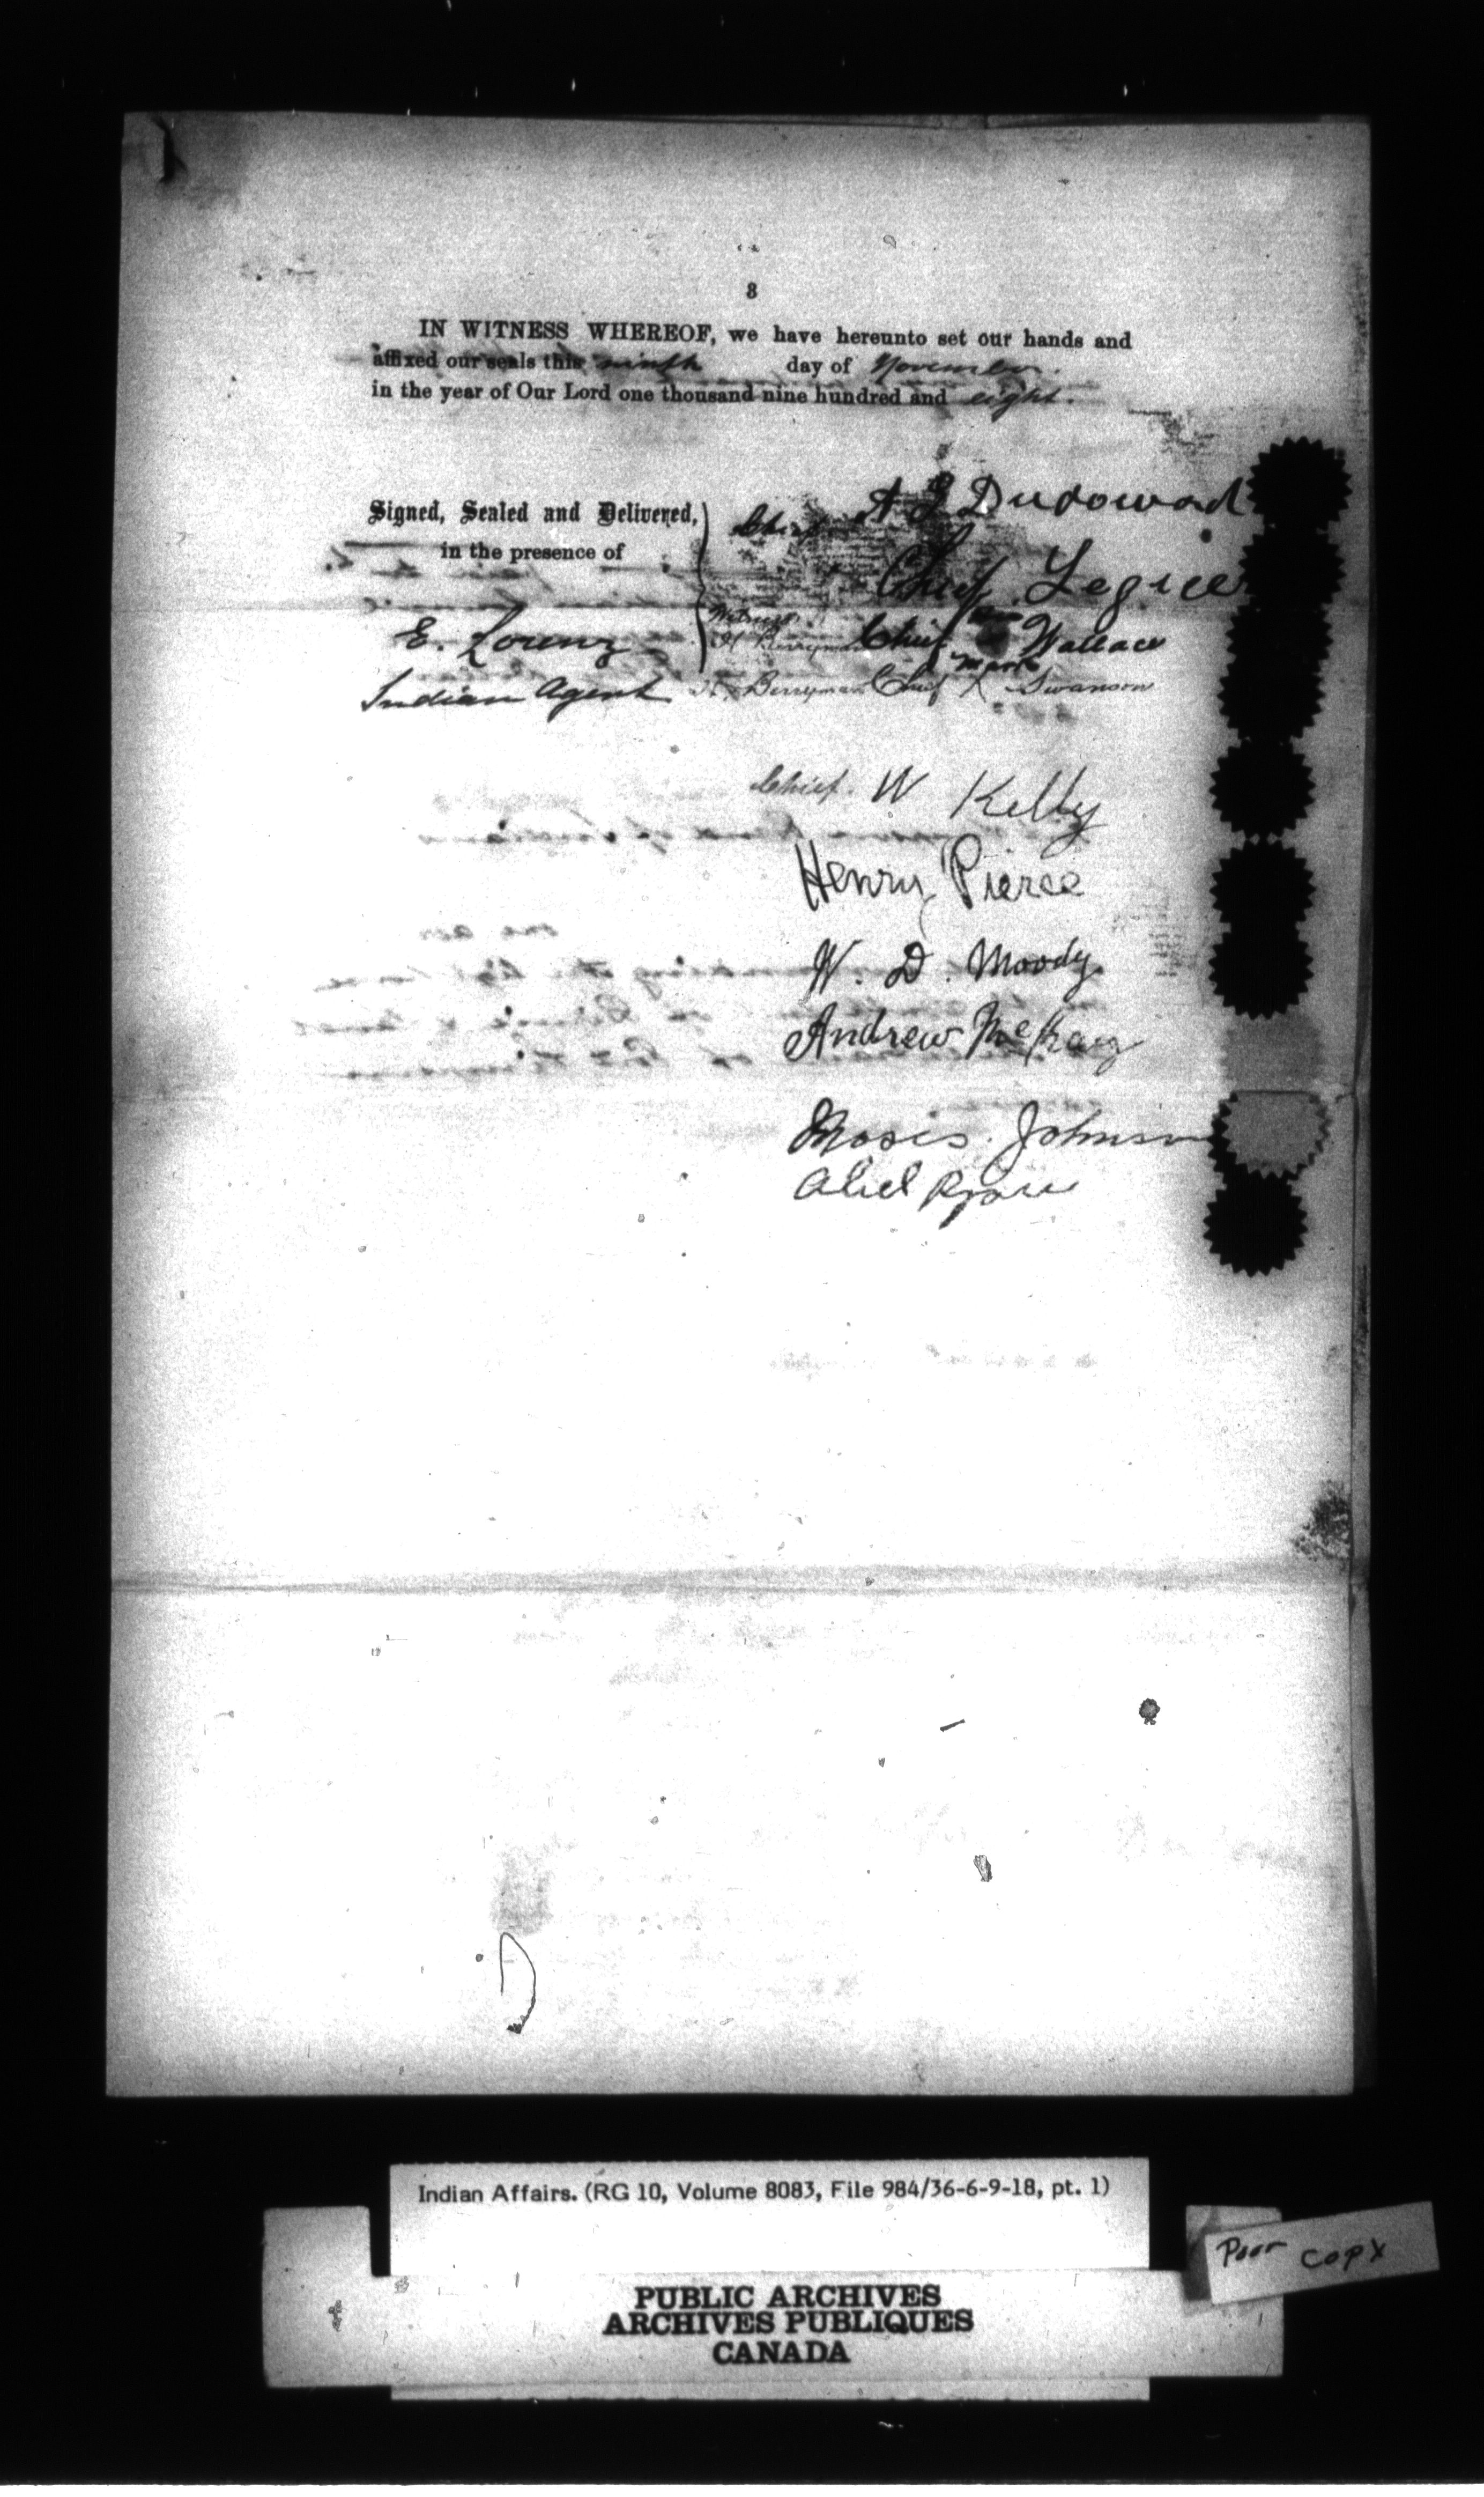 3
IN WITNESS WHEREOF, we have hereunto set our hands and
affixed our seals this ninth day of November.
in the year of Our Lord one thousand nine hundred and eight.
Signed, Sealed and Delivered,
in the presence of
E. Lorenz
Indian Agent
Chief A J Dudoward
Chief Legiec
Witness
H Berryman Chief Wallace
mark
H. Berryman Chief X Swanson
Chief. W Kelly
Henry Pierce
W. D. Moody
Andrew McKay
Moses. Johnson
Indian Affairs. (RG 10, Volume 8083, File 984/36-6-9-18, pt. 1)
Poor Copy
PUBLIC ARCHIVES
ARCHIVES PUBLIQUES
CANADA